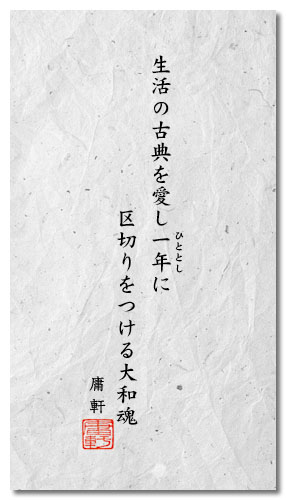 生活の古典を愛し一年に
ひととし
区切りをつける大和魂
庸軒
庸軒